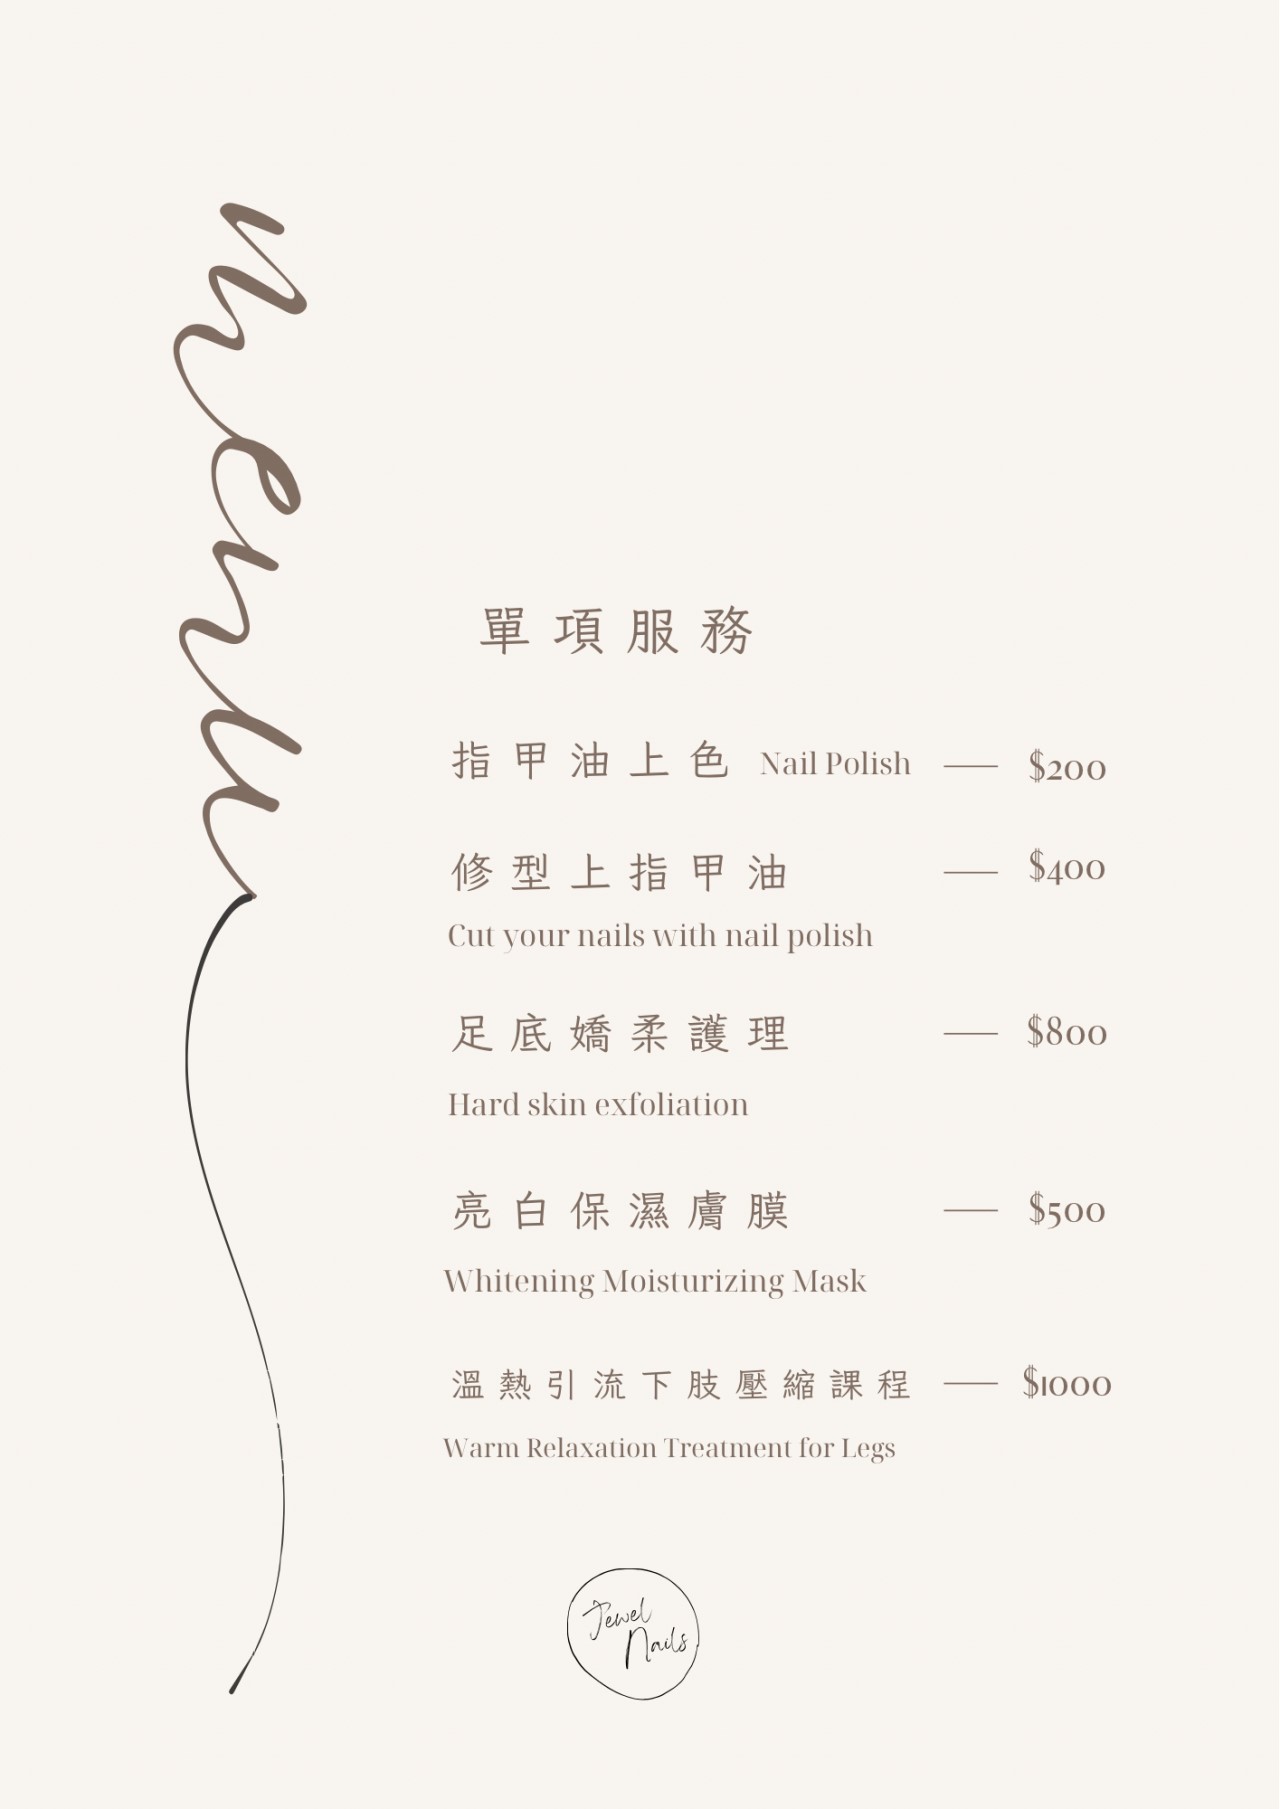 menu
單項服務
指甲油上色 Nail Polish — $200
修型上指甲油 — $400
Cut your nails with nail polish
足底嬌柔護理 — $800
Hard skin exfoliation
亮白保濕膚膜 — $500
Whitening Moisturizing Mask
溫熱引流下肢壓縮課程 — $1000
Warm Relaxation Treatment for Legs
Jewel
Nails